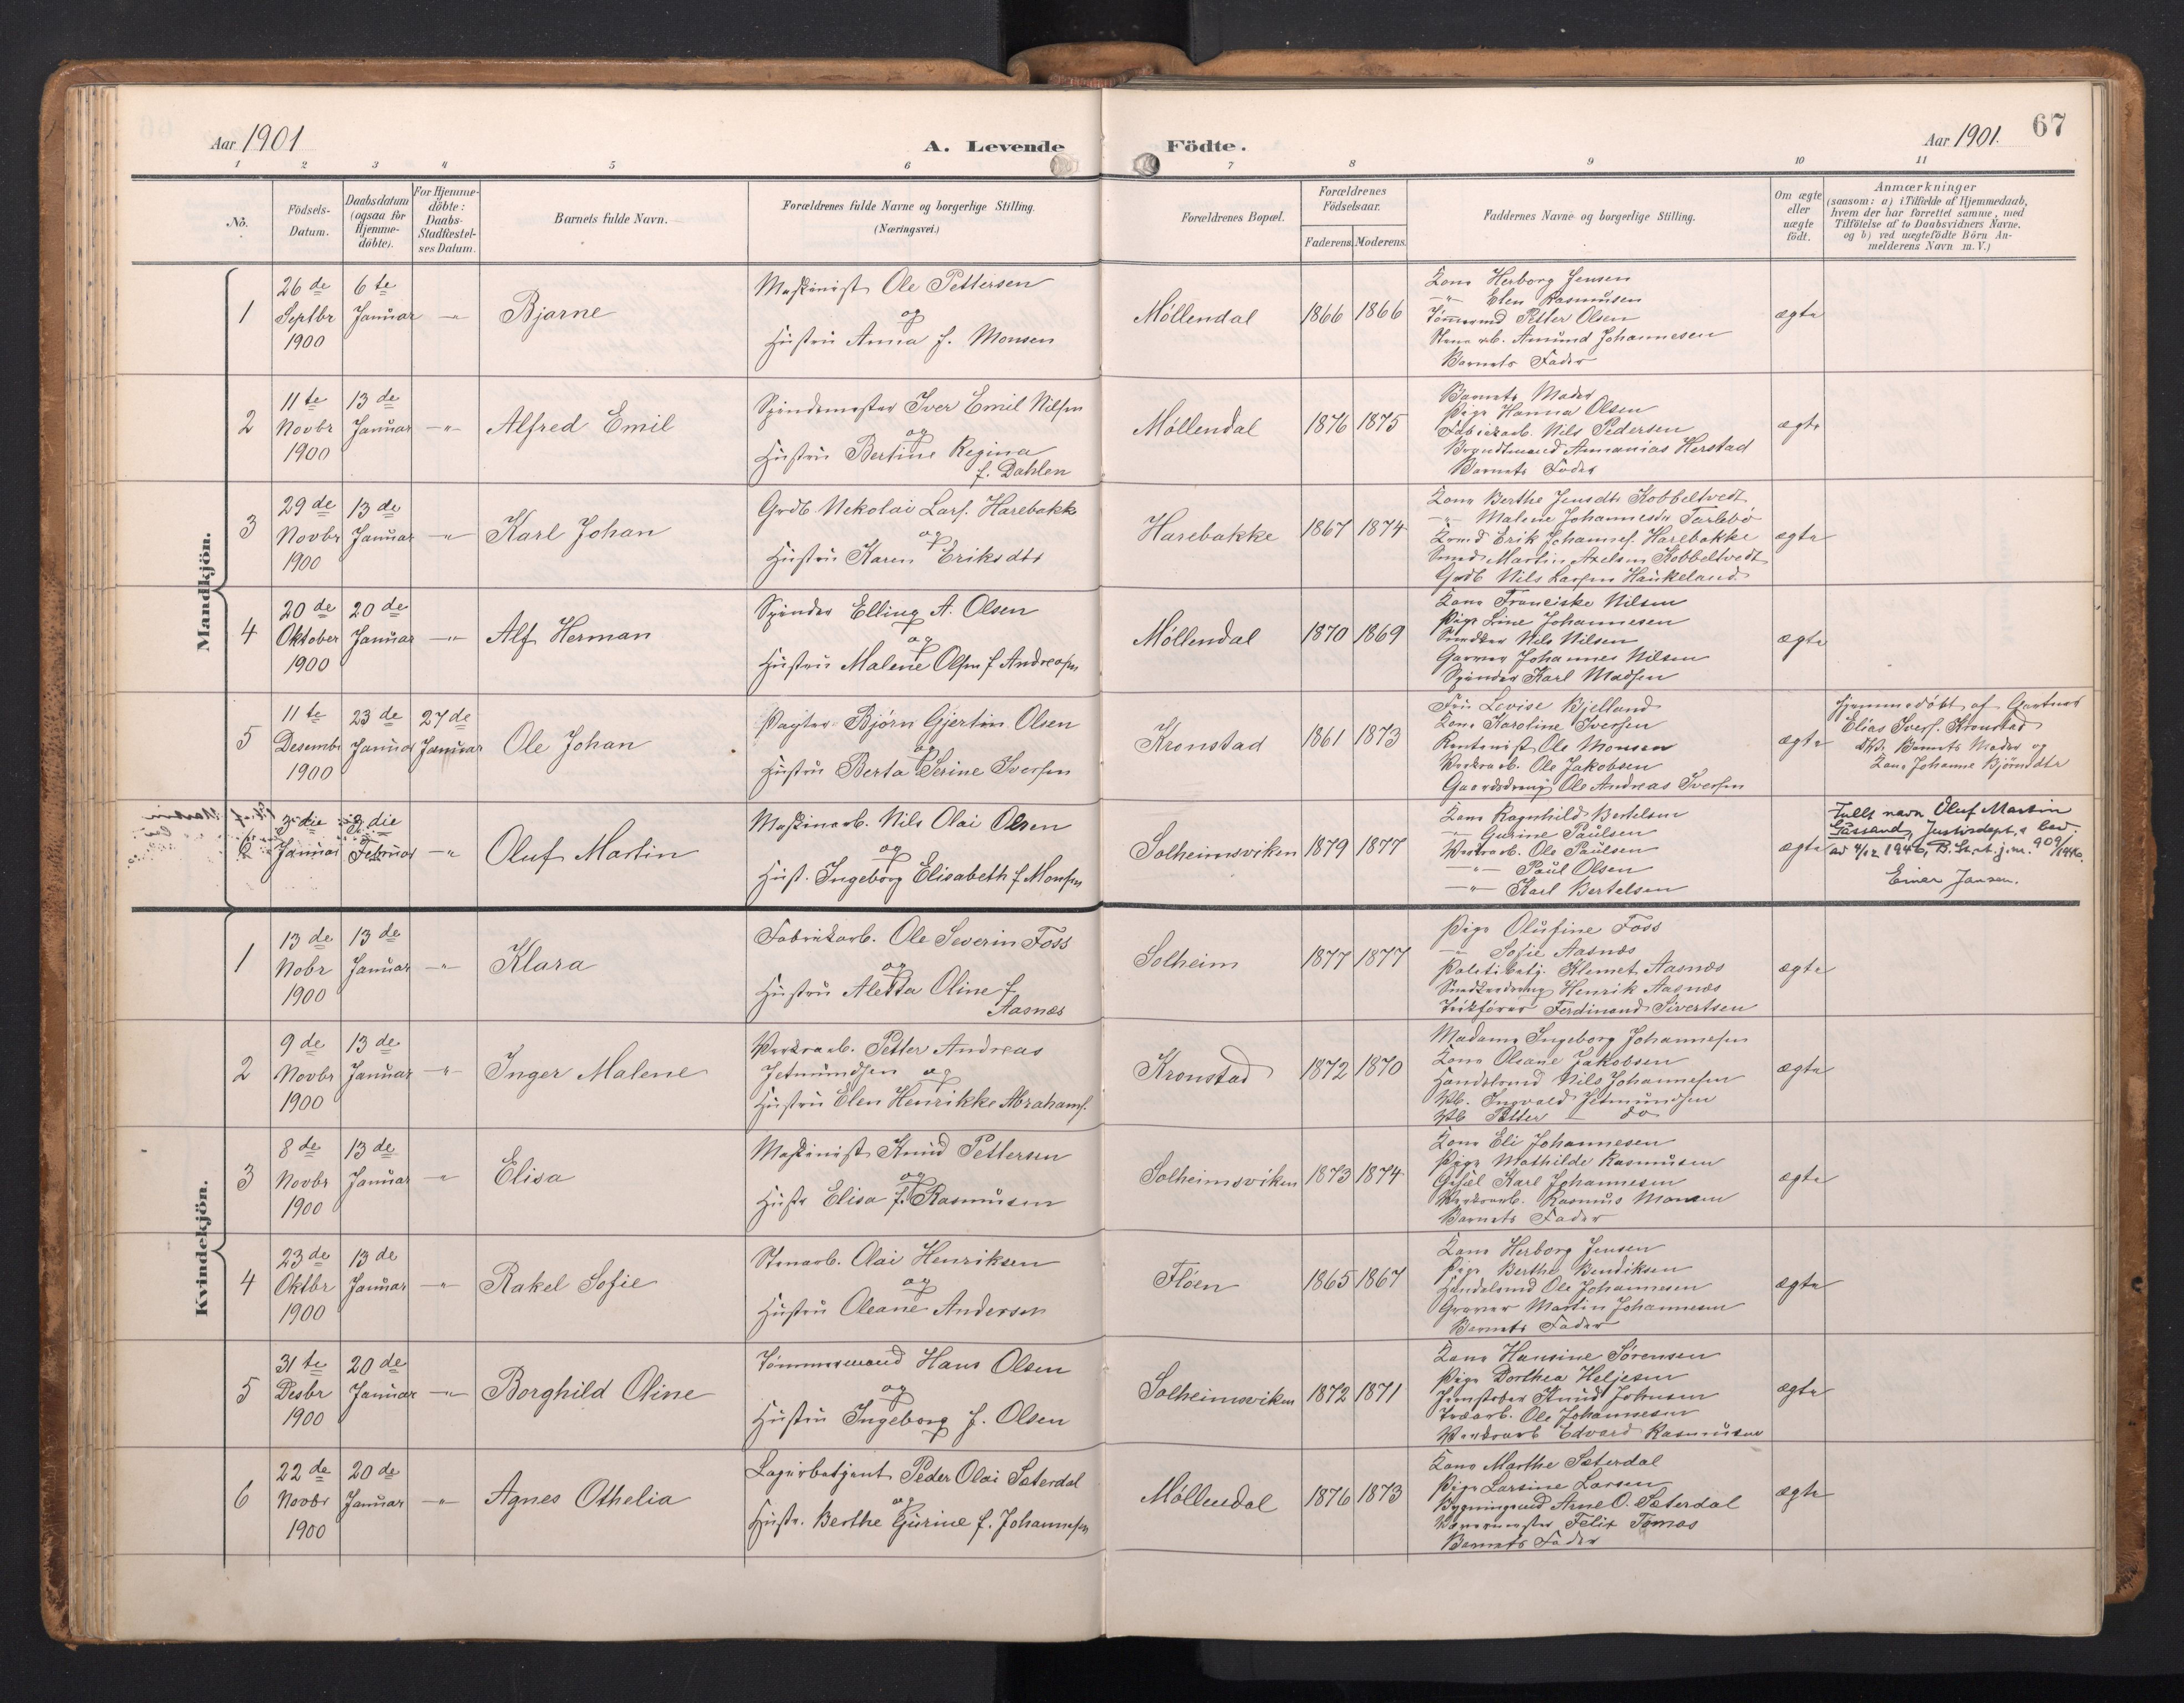 Aar 1901
A. Levende
Födte.
Aar 1901.
67
1 2 3 4 5 6 7 8 9 10 11
No.
Födsels-Datum.
Daabsdatum (ogsaa for Hjemme-döbte).
For Hjemme-döbte: Daabs-Stadfæstel-ses Datum.
Barnets fulde Navn.
Forældrenes fulde Navne og borgerlige Stilling.
(Næringsvei.)
Forældrenes Bopæl.
Forældrenes Födselsaar.
Faderens. Moderens.
Faddernes Navne og borgerlige Stilling.
Om ægte eller uægte födt.
Anmærkninger
(saasom: a) i Tilfælde af Hjemmedaab,
hvem der har forrettet samme, med
Tilföielse af to Daabsvidners Navne.
og b) ved uægtefödte Börn An-
melderens Navn m.V.)
Mandkjön.
1
26de Septbr 1900
6te Januar
-"-
Bjarne
Maskinist Ole Pettersen
og
Hustru Anna f. Monsen
Møllendal
1866 1866
Kone Herborg Jensen
-"- Elen Rasmusen
Tømmermd Petter Olsen
Amund Johannesen
Barnets Fader
ægte
2
11te Novbr 1900
13de Januar
-"-
Alfred Emil
Spindemester Iver Emil Nilsen
og
Hustru Bertine Regina
f. Dahlen
Møllendal
1876 1875
Barnets Moder
Pige Hanna Olsen
Fabrikarb. Nils Pedersen
Ananias Herstad
Barnets Fader
ægte
3
29de Novbr 1900
13de Januar
-"-
Karl Johan
Grdb. Nekolai Lars. Harebakk
og
Hustru Karen Eriksdtr
Harebakke
1867 1874
Kone Berthe Jensdtr Kobbeltvedt
-"- Malene Johannesdr Tarlebø
Erik Johannes. Harebakke
Martin Axelsen Kobbeltvedt
Grdb Nils Larsen Haukeland
ægte
4
20de Oktober 1900
20de Januar
-"-
Alf Herman
Spinder Elling A. Olsen
og
Hustru Malene Olsen f Andreasen
Møllendal
1870 1869
Kone Franciske Nilsen
Pige Line Johannesen
Snedker Nils Nilsen
Garver Johannes Nilsen
Spinder Karl Madsen
ægte
5
11te Desembr 1900
23de Januar
27de Januar
Ole Johan
Pagter Bjørn Gjertin Olsen
og
Hustru Berta Serine Iversen
Kronstad
1861 1873
Fru Lovise Bjelland
Kone Karoline Iversen
Rentenist Ole Monsen
Værksarb. Ole Jakobsen
Gaardsdreng Ole Andreas Iversen
ægte
Hjemmedøbt af Gartner
EliasIvers. Kronstad
Barnets Moder og
Kone Johanne Bjørnsdtr
6
3die Januar
3die Februar
-"-
Oluf Martin
Maskinarb. Nils Olai Olsen
og
Hust. Ingeborg Elisabeth f Monsen
Solheimsviken
1879 1877
Kone Ragnhild Bertelsen
-"- Gurine Paulsen
Værksarb. Ole Paulsen
-"- Paul Olsen
-"- Karl Bertelsen
ægte
Fullt navn Oluf Martin
Justisdept.s bev.
av 4/12 1946, B. St. A. j.nr. 909/1946.
Einar Jansen.
Kvindekjön.
1
13de Nobr 1900
13de Januar
-"-
Klara
Fabrikarb. Ole Severin Foss
og
Hustru Aletta Oline f.
Aasnæs
Solheim
1877 1877
Pige Olufine Foss
-"- Sofie Aasnæs
Politibetj. Klemet Aasnæs
Snedkerdreng Henrik Aasnæs
Ferdinand Sivertsen
ægte
2
9de Novbr 1900
13de Januar
-"-
Inger Malene
Værksarb. Petter Andreas
Jetmundsen og
Hustru Elen Henrikke Abrahams.
Kronstad
1872 1870
Madame Ingeborg Johannesen
Kone Oleane Jakobsen
Handelsmd Nils Johannesen
Vb. Ingvald Jetmundsen
Vb Petter do
ægte
3
8de Novbr 1900
13de Januar
-"-
Elisa
Maskinist Knud Pettersen
og
Hustr Elisa f. Rasmusen
Solheimsviken
1873 1874
Kone Eli Johannesen
Pige Mathilde Rasmusen
Karl Johannesen
Værksarb. Rasmus Monsen
Barnets Fader
ægte
4
23de Oktbr 1900
13de Januar
-"-
Rakel Sofie
Stenarb. Olai Henriksen
og
Hustru Oleane Andersen
Fløen
1865 1867
Kone Herborg Jensen
Pige Berthe Bendiksen
Handelsmd Ole Johannesen
Graver Martin Johannesen
Barnets Fader
ægte
5
31te Desbr 1900
20de Januar
-"-
Borghild Oline
Tømmermand Hans Olsen
og
Hustru Ingeborg f. Olsen
Solheimsviken
1872 1871
Kone Hansine Sørensen
Pige Dorthea Heljesen
Jernstøber Knud Johnsen
Træarb. Ole Johannesen
Værksarb Edvard Rasmusen
ægte
6
22de Novbr 1900
20de Januar
-"-
Agnes Othelia
Lagerbetjent Peder Olai Sæterdal
og
Hustr. Berthe Gurine f. Johannesen
Møllendal
1876 1873
Kone Marthe Sæterdal
Pige Larsine Larsen
Bygningsmd Arne O. Sæterdal
Felix Tomas
Barnets Fader
ægte